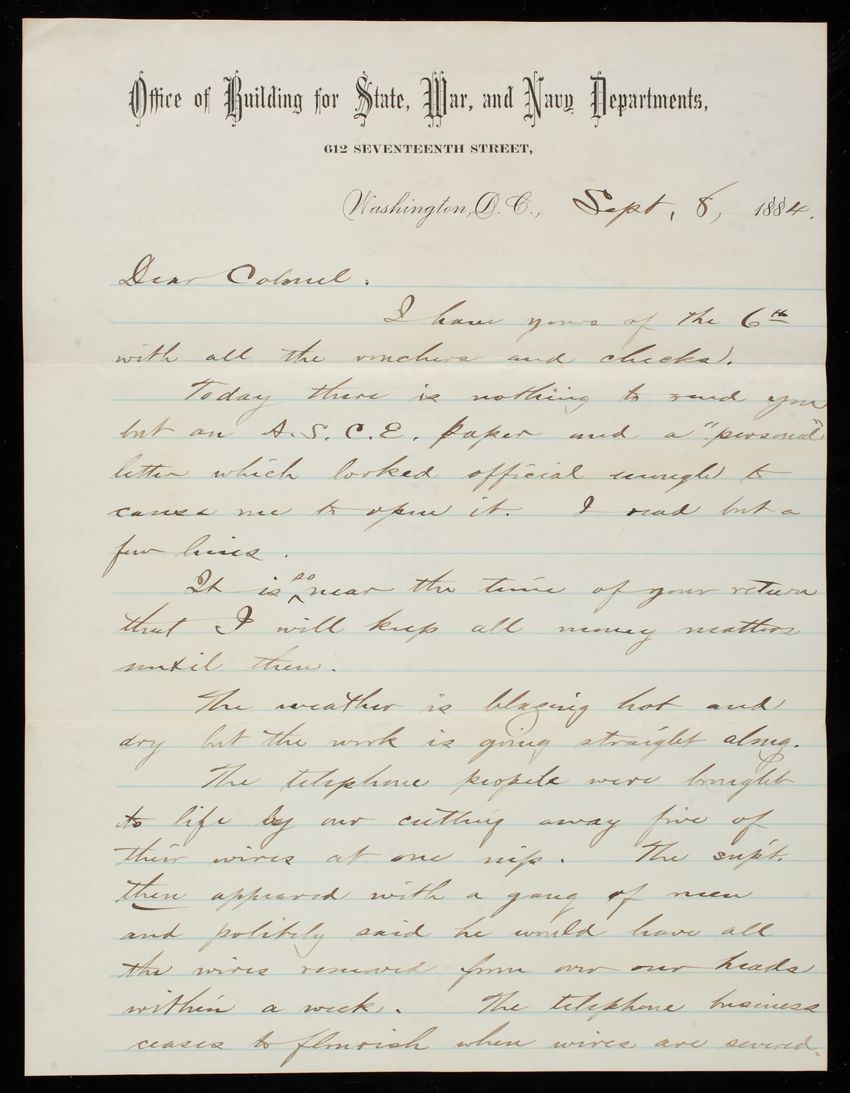 Office of Building for State, War, and Navy Departments,
612 SEVENTEENTH STREET,
Washington, D. C., Sept, 8, 1884.
Dear Colonel.
I have yours of the 6th
with all the vouchers and checks.
Today there is nothing to send you
but an A. S. C. E. paper and a "personal"
letter which looked official enough to
cause me to open it. I read but a
few lines.
It is so near the time of your return
that I will keep all money matters
until then.
The weather is blazing hot and
dry but the work is going straight along.
The telephone people were brought
to life by our cutting away five of
their wires at one nip. The supt.
then appeared with a gang of men
and politely said he would have all
the wires removed from over our heads
within a week. The telephone business
ceases to flourish when wires are severed.